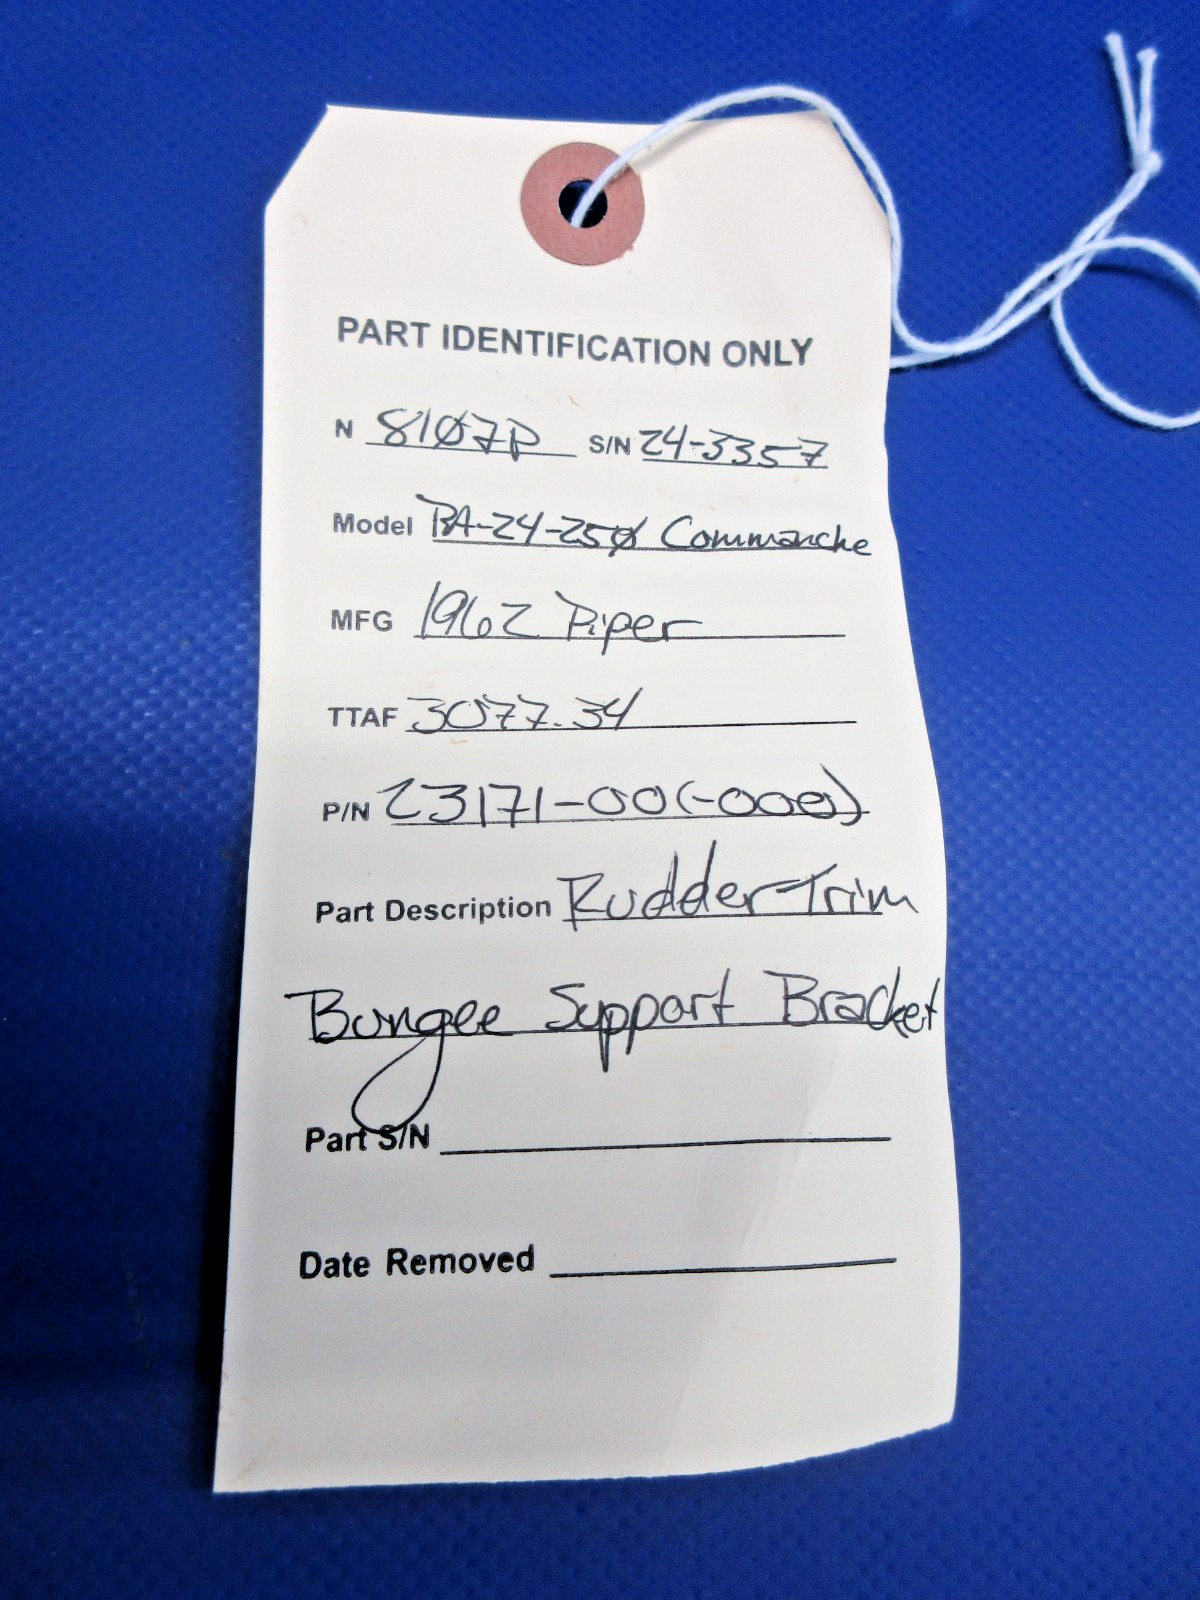 PART IDENTIFICATION ONLY
N 8107P S/N 24-3357
Model PA-24-250 Commanche
MFG 1962 Piper
TTAF 3077.34
P/N 23171-00(-000)
Part Description Rudder Trim
Bungee Support Bracket
Part S/N
Date Removed